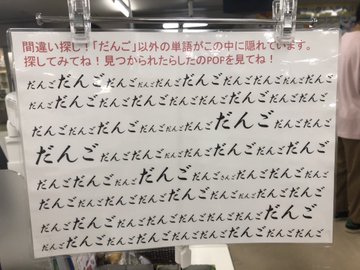 間違い探し!「だんご」以外の単語がこの中に隠れています。
探してみてね!見つかられたらしたのPOPを見てね!
だんごだんごだんごだんごだんごだんごだんごだんごだんごだんご
だんごだんごだんごだんごだんごだんごだんごだんごだんご
だんごだんごだんごだんごだんごだんごだんごだんご
だんごだんごだんごだんごだんごだんごだんごだんご
だんごだんごだんごだんごだんごだんごだんごだんご
だんごだんごだんごだんごだんごだんごだんごだんごだんご
だんごだんごだんごだんごだんごだんごだんごだんご
だんごだんごだんごだんごだんごだんごだんごだんごだんご